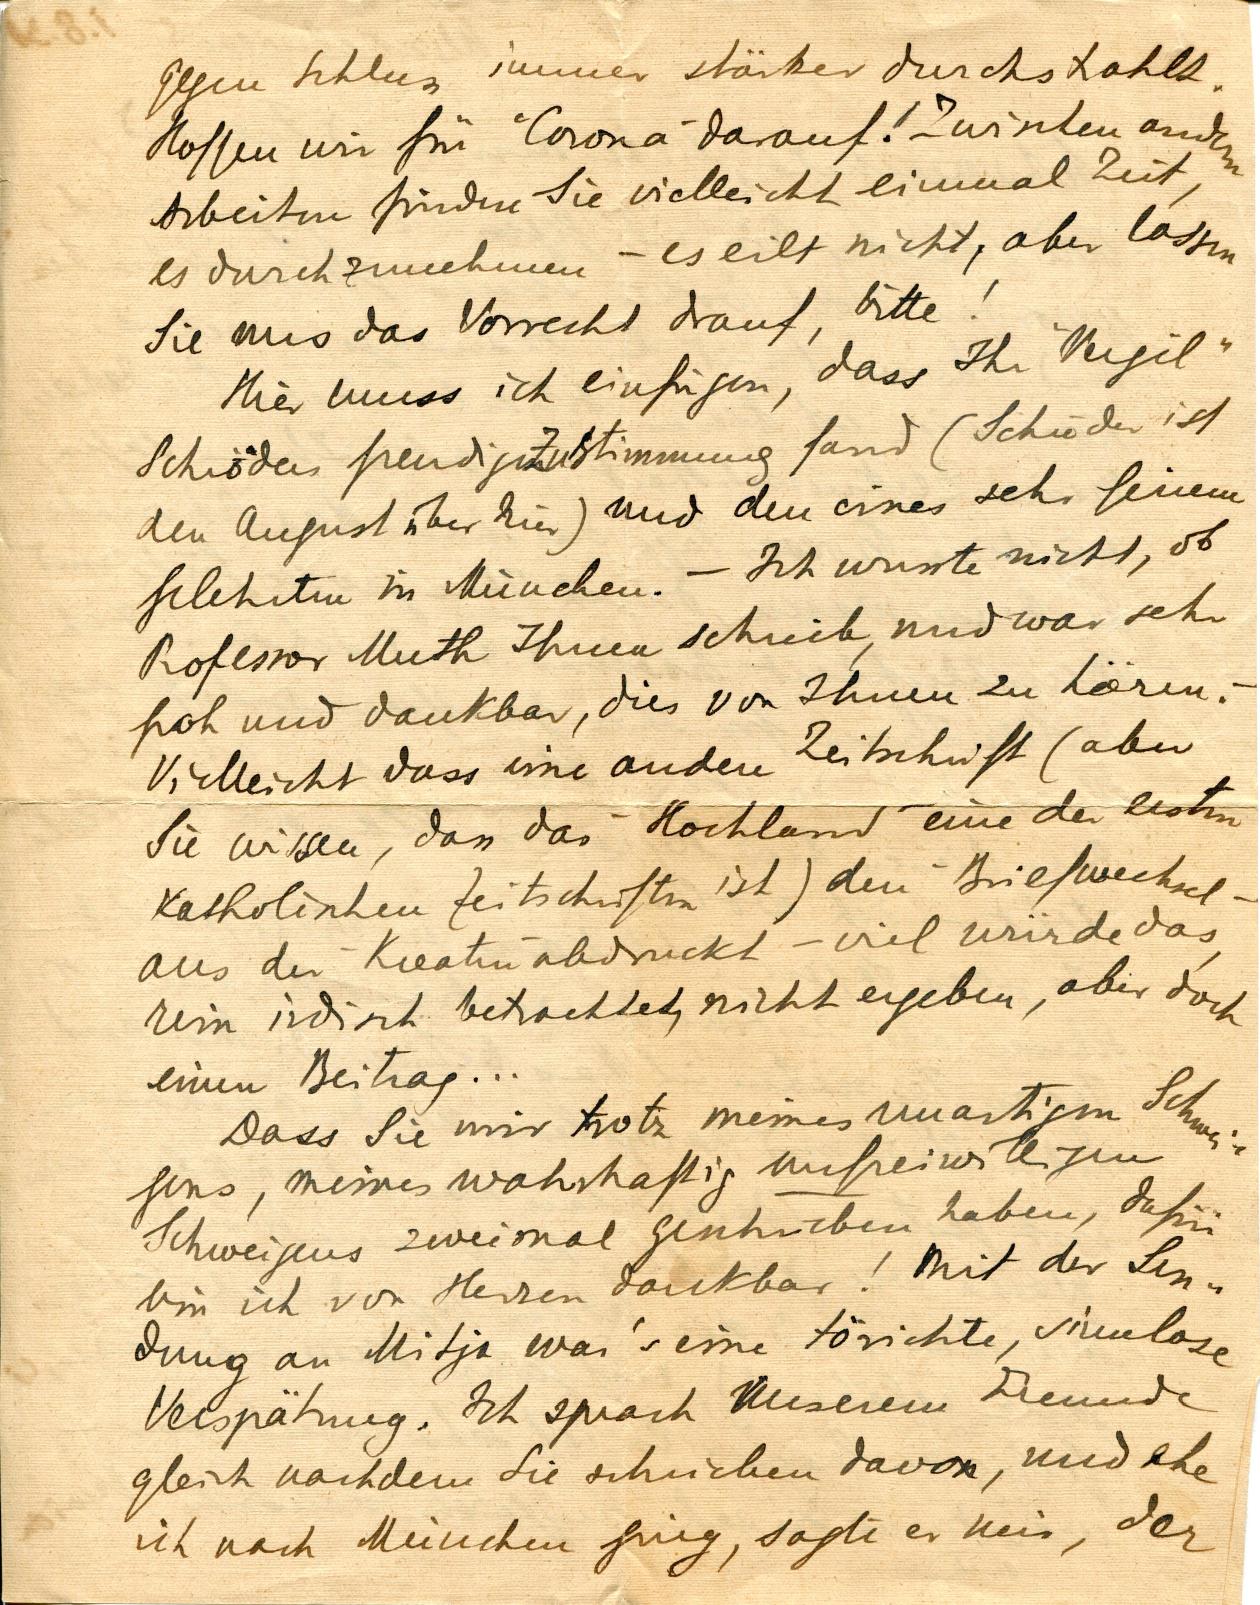 gegen Schluss immer stärker durchstrahlt.
Hoffen wir für "Corona" darauf! Zwischen andern
Arbeiten finden Sie vielleicht einmal Zeit,
es durchzunehmen – es eilt nicht, aber lassen
Sie uns das Vorrecht drauf, bitte!
Hier muss ich einfügen, dass Ihr "Vergil"
Schröders freudige Zustimmung fand (Schröder ist
den August über hier) und den eines sehr feinem
Gelehrten in München. – Ich wusste nicht, ob
Professor Muth Ihnen schrieb, und war sehr
froh und dankbar, dies von Ihnen zu hören. –
Vielleicht dass eine andere Zeitschrift (aber
Sie wissen, dass das "Hochland" eine der ersten
katholischen Zeitschriften ist) den "Briefwechsel"
aus der "Kreatur" abdruckt – viel würde das,
rein irdisch betrachtet, nicht ergeben, aber doch
einen Beitrag...
Dass Sie mir trotz meines unartigen Schwei-
gens, meines wahrhaftig unfreiwilligen
Schweigens zweimal geschrieben haben, dafür
bin ich von Herzen dankbar! Mit der Sen-
dung an Mitja war's eine törichte, sinnlose
Verspätung. Ich sprach unserem Freunde
gleich nachdem Sie schrieben davon, und ehe
ich nach München ging, sagte er mir, der